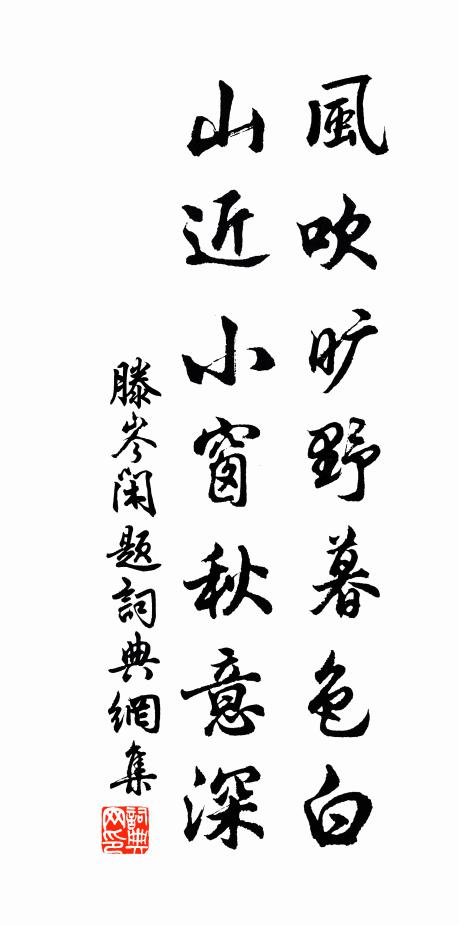 風吹旷野暮色白
山近小窗秋意深
滕岑閑题詞典網集
詞典網印